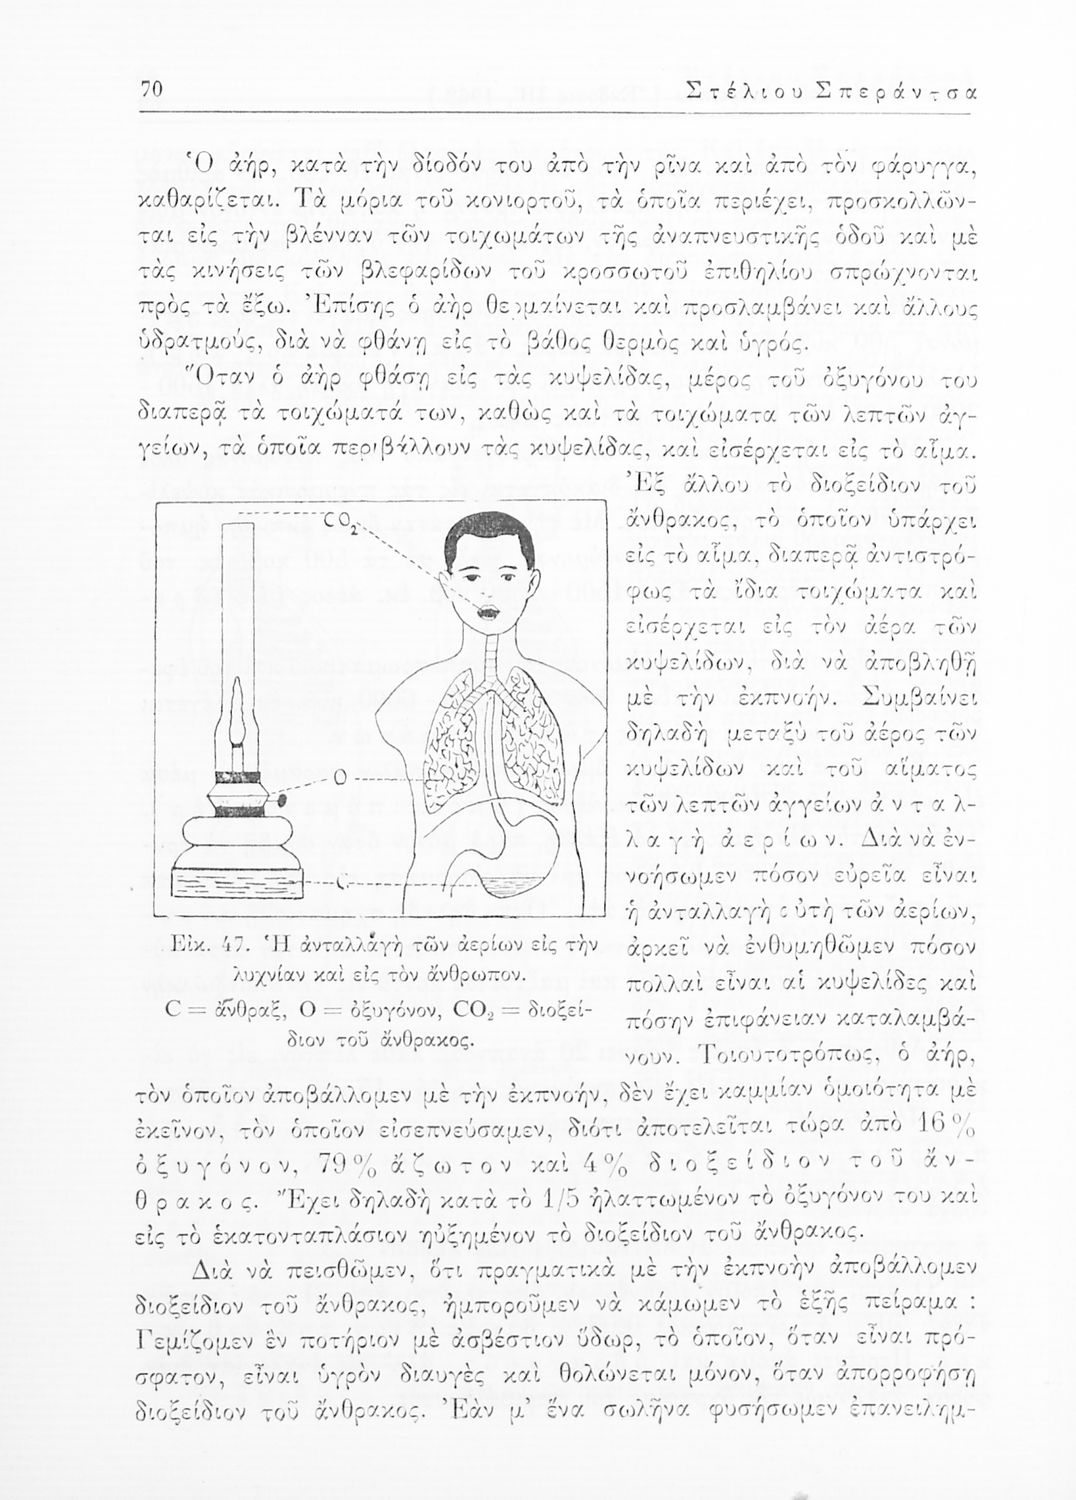 70
Στέλιου Σπεράντσα
Ὁ ἀήρ, κατὰ τὴν δίοδόν του ἀπὸ τὴν ρῖνα καὶ ἀπὸ τὸν φάρυγγα,
καθαρίζεται. Τὰ μόρια τοῦ κονιορτοῦ, τὰ ὁποῖα περιέχει, προσκολλῶν-
ται εἰς τὴν βλένναν τῶν τοιχωμάτων τῆς ἀναπνευστικῆς ὁδοῦ καὶ μὲ
τὰς κινήσεις τῶν βλεφαρίδων τοῦ κροσσωτοῦ ἐπιθηλίου σπρώχνονται
πρὸς τὰ ἔξω. Ἐπίσης ὁ ἀὴρ θερμαίνεται καὶ προσλαμβάνει καὶ ἄλλους
ὑδρατμούς, διὰ νὰ φθάνῃ εἰς τὸ βάθος θερμὸς καὶ ὑγρός.
Ὅταν ὁ ἀὴρ φθάσῃ εἰς τὰς κυψελίδας, μέρος τοῦ ὀξυγόνου του
διαπερᾷ τὰ τοιχώματά των, καθὼς καὶ τὰ τοιχώματα τῶν λεπτῶν ἀγ-
γείων, τὰ ὁποῖα περιβάλλουν τὰς κυψελίδας, καὶ εἰσέρχεται εἰς τὸ αἷμα.
Ἐξ ἄλλου τὸ διοξείδιον τοῦ
ἄνθρακος, τὸ ὁποῖον ὑπάρχει
εἰς τὸ αἷμα, διαπερᾷ ἀντιστρό-
φως τὰ ἴδια τοιχώματα καὶ
εἰσέρχεται εἰς τὸν ἀέρα τῶν
κυψελίδων, διὰ νὰ ἀποβληθῇ
μὲ τὴν ἐκπνοήν. Συμβαίνει
δηλαδὴ μεταξὺ τοῦ ἀέρος τῶν
κυψελίδων καὶ τοῦ αἵματος
τῶν λεπτῶν ἀγγείων ἀνταλ-
λαγὴ ἀερίων. Διὰ νὰ ἐν-
νοήσωμεν πόσον εὐρεῖα εἶναι
ἡ ἀνταλλαγὴ αὐτὴ τῶν ἀερίων,
ἀρκεῖ νὰ ἐνθυμηθῶμεν πόσον
πολλαὶ εἶναι αἱ κυψελίδες καὶ
πόσην ἐπιφάνειαν καταλαμβά-
νουν. Τοιουτοτρόπως, ὁ ἀήρ,
CO₂
O
C
Εἰκ. 47. Ἡ ἀνταλλαγὴ τῶν ἀερίων εἰς τὴν
λυχνίαν καὶ εἰς τὸν ἄνθρωπον.
C = ἄνθραξ, O = ὀξυγόνον, CO₂ = διοξεί-
διον τοῦ ἄνθρακος.
τὸν ὁποῖον ἀποβάλλομεν μὲ τὴν ἐκπνοήν, δὲν ἔχει καμμίαν ὁμοιότητα μὲ
ἐκεῖνον, τὸν ὁποῖον εἰσεπνεύσαμεν, διότι ἀποτελεῖται τώρα ἀπὸ 16%
ὀξυγόνον, 79% ἄζωτον καὶ 4% διοξείδιον τοῦ ἄν-
θρακος. Ἔχει δηλαδὴ κατὰ τὸ 1/5 ἠλαττωμένον τὸ ὀξυγόνον του καὶ
εἰς τὸ ἑκατονταπλάσιον ηὐξημένον τὸ διοξείδιον τοῦ ἄνθρακος.
Διὰ νὰ πεισθῶμεν, ὅτι πραγματικὰ μὲ τὴν ἐκπνοὴν ἀποβάλλομεν
διοξείδιον τοῦ ἄνθρακος, ἠμποροῦμεν νὰ κάμωμεν τὸ ἑξῆς πείραμα :
Γεμίζομεν ἓν ποτήριον μὲ ἀσβέστιον ὕδωρ, τὸ ὁποῖον, ὅταν εἶναι πρό-
σφατον, εἶναι ὑγρὸν διαυγὲς καὶ θολώνεται μόνον, ὅταν ἀπορροφήσῃ
διοξείδιον τοῦ ἄνθρακος. Ἐὰν μ’ ἕνα σωλῆνα φυσήσωμεν ἐπανειλημ-